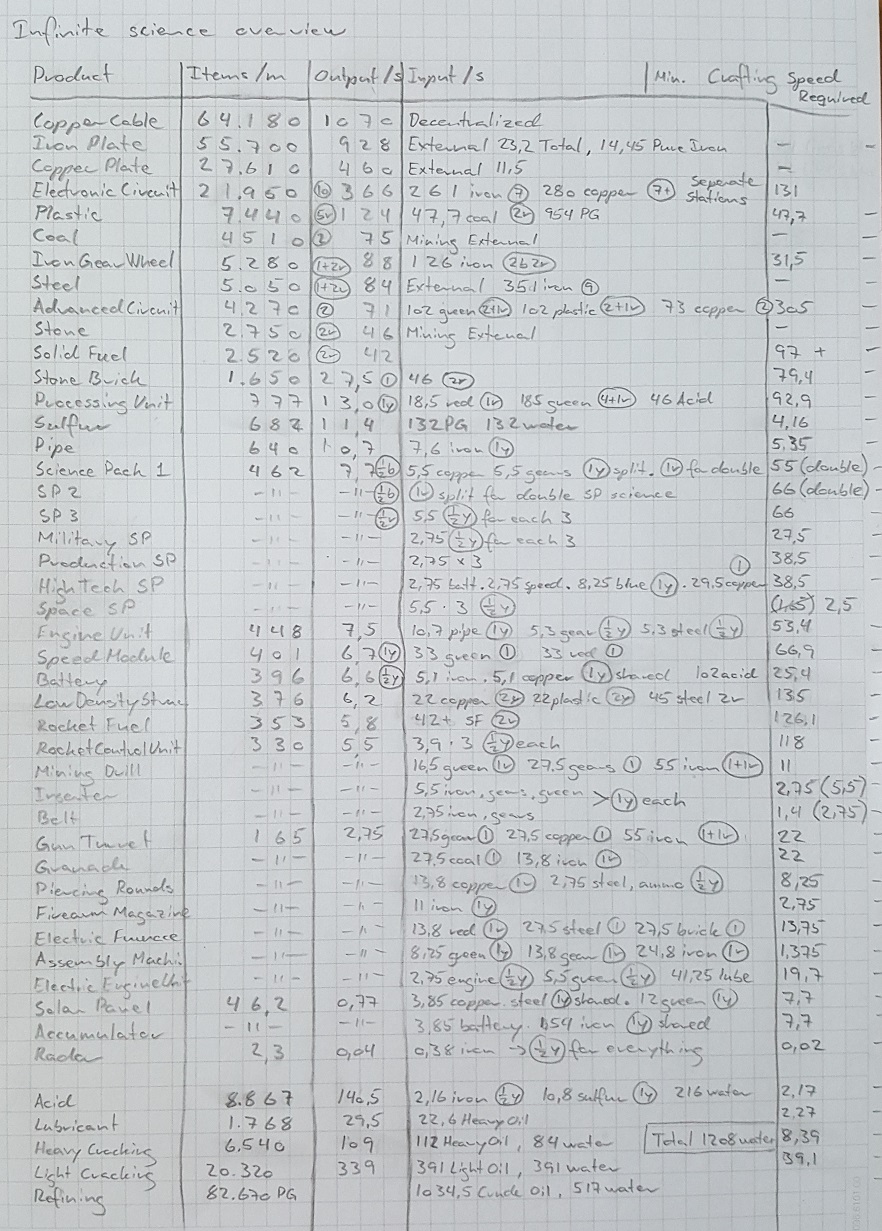 Infinite science overview
Product Items/m Output/s Input/s Min. Crafting Speed Required
Copper Cable 64.180 1070 Decentralized
Iron Plate 55.700 928 External 23,2 Total, 14,45 Pure Iron –
Copper Plate 27.610 460 External 11,5 –
Electronic Circuit 21.950 (10) 366 261 iron (7) 280 copper (7+) Seperate stations 131
Plastic 7.440 (5r) 124 47,7 coal (2r) 954 PG 47,7
Coal 4510 (2) 75 Mining External –
Iron Gear Wheel 5.280 (1+2r) 88 126 iron (2b2r) 31,5
Steel 5.050 (1+2r) 84 External 351 iron (9) –
Advanced Circuit 4.270 (2) 71 102 green (2+1r) 102 plastic (2+1r) 73 copper (2) 305
Stone 2.750 (2r) 46 Mining Extenal –
Solid Fuel 2.520 (2r) 42 97 +
Stone Brick 1.650 27,5 (1) 46 (2r) 79,4
Processing Unit 777 13,0 (1y) 18,5 red (1r) 185 green (4+1r) 46 Acid 92,9
Sulfur 682 11,4 132 PG 132 water 4,16
Pipe 640 10,7 7,6 iron (1y) 5,35
Science Pack 1 462 7,7 (½b) 5,5 copper 5,5 gears (1y) split. (1r) for double 55 (double)
SP 2 -11- -11- (½b) (1r) split for double SP science 66 (double)
SP 3 -11- -11- (½r) 5,5 (½y) for each 3 66
Military SP -11- -11- 2,75 (½y) for each 3 27,5
Production SP -11- -11- 2,75 x 3 38,5
High Tech SP -11- -11- 2,75 batt. 2,75 speed. 8,25 blue (1y). 29,5 copper (1) 38,5
Space SP -11- -11- 5,5 · 3 (½y) (1,65) 2,5
Engine Unit 448 7,5 10,7 pipe (1y) 5,3 gear (½y) 5,3 steel (½y) 53,4
Speed Module 401 6,7 (1y) 33 green (1) 33 red (1) 66,9
Battery 396 6,6 (½y) 5,1 iron. 5,1 copper (1y) shared 102 acid 25,4
Low Density Struc 376 6,2 22 copper (2r) 22 plastic (2y) 45 steel 2r 135
Rocket Fuel 353 5,8 42+ SF (2r) 126,1
Rocket Control Unit 330 5,5 3,9 · 3 (½y) each 118
Mining Drill -11- -11- 16,5 green (1r) 27,5 gears (1) 55 iron (1+1r) 11
Inserter -11- -11- 5,5 iron, gears, green > (1y) each 2,75 (5,5)
Belt -11- -11- 2,75 iron, gears 1,4 (2,75)
Gun Turret 165 2,75 27,5 gear (1) 27,5 copper (1) 55 iron (1+1r) 22
Granade -11- -11- 27,5 coal (1) 13,8 iron (1r) 22
Piercing Rounds -11- -11- 13,8 copper (1r) 2,75 steel, ammo (½y) 8,25
Firearm Magazine -11- -11- 11 iron (1y) 2,75
Electric Furnace -11- -11- 13,8 red (1r) 27,5 steel (1) 27,5 brick (1) 13,75
Assembly Machi. -11- -11- 8,25 green (1y) 13,8 gear (1r) 24,8 iron (1r) 1,375
Electric Engine Unit -11- -11- 2,75 engine (½y) 5,5 green (½y) 41,25 lube 19,7
Solar Panel 46,2 0,77 3,85 copper. steel (1y) shared. 12 green (1y) 7,7
Accumulator -11- -11- 3,85 battery. 1,54 iron (1y) shared 7,7
Radar 2,3 0,04 0,38 iron → (½y) for everything 0,02
Acid 8.867 140,5 2,16 iron (½y) 10,8 sulfur (1y) 216 water 2,17
Lubricant 1.768 29,5 22,6 Heavy Oil 2,27
Heavy Cracking 6,540 109 112 Heavy Oil, 84 water Total 1208 water 8,39
Light Cracking 20.320 339 391 Light Oil, 391 water 39,1
Refining 82.670 PG 1034,5 Crude Oil, 517 water